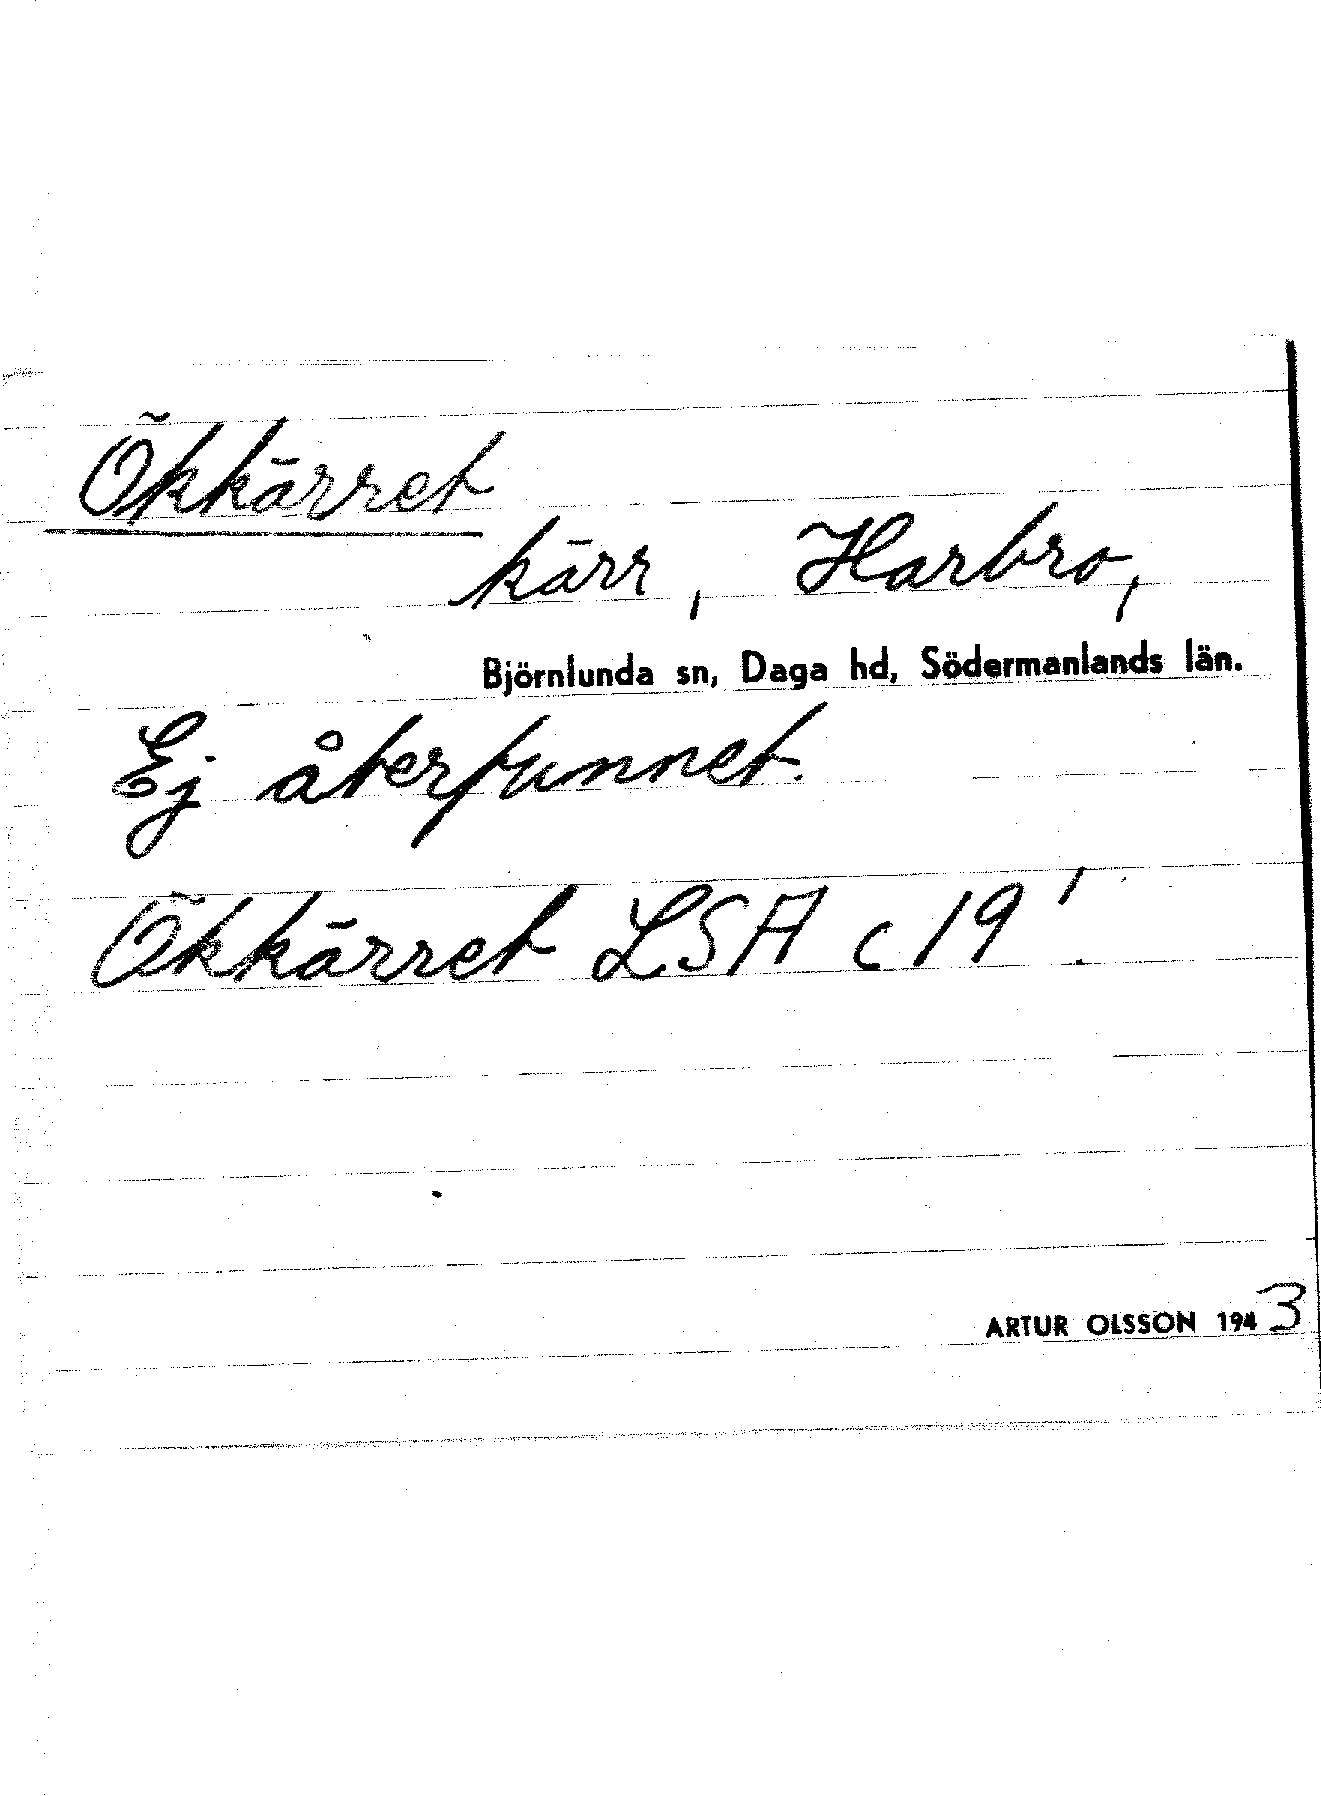 Ökkärret
kärr, Harbro,
Björnlunda sn, Daga hd, Södermanlands län.
Ej återfunnet.
Ökkärret LSA c 19'.
ARTUR OLSSON 1943